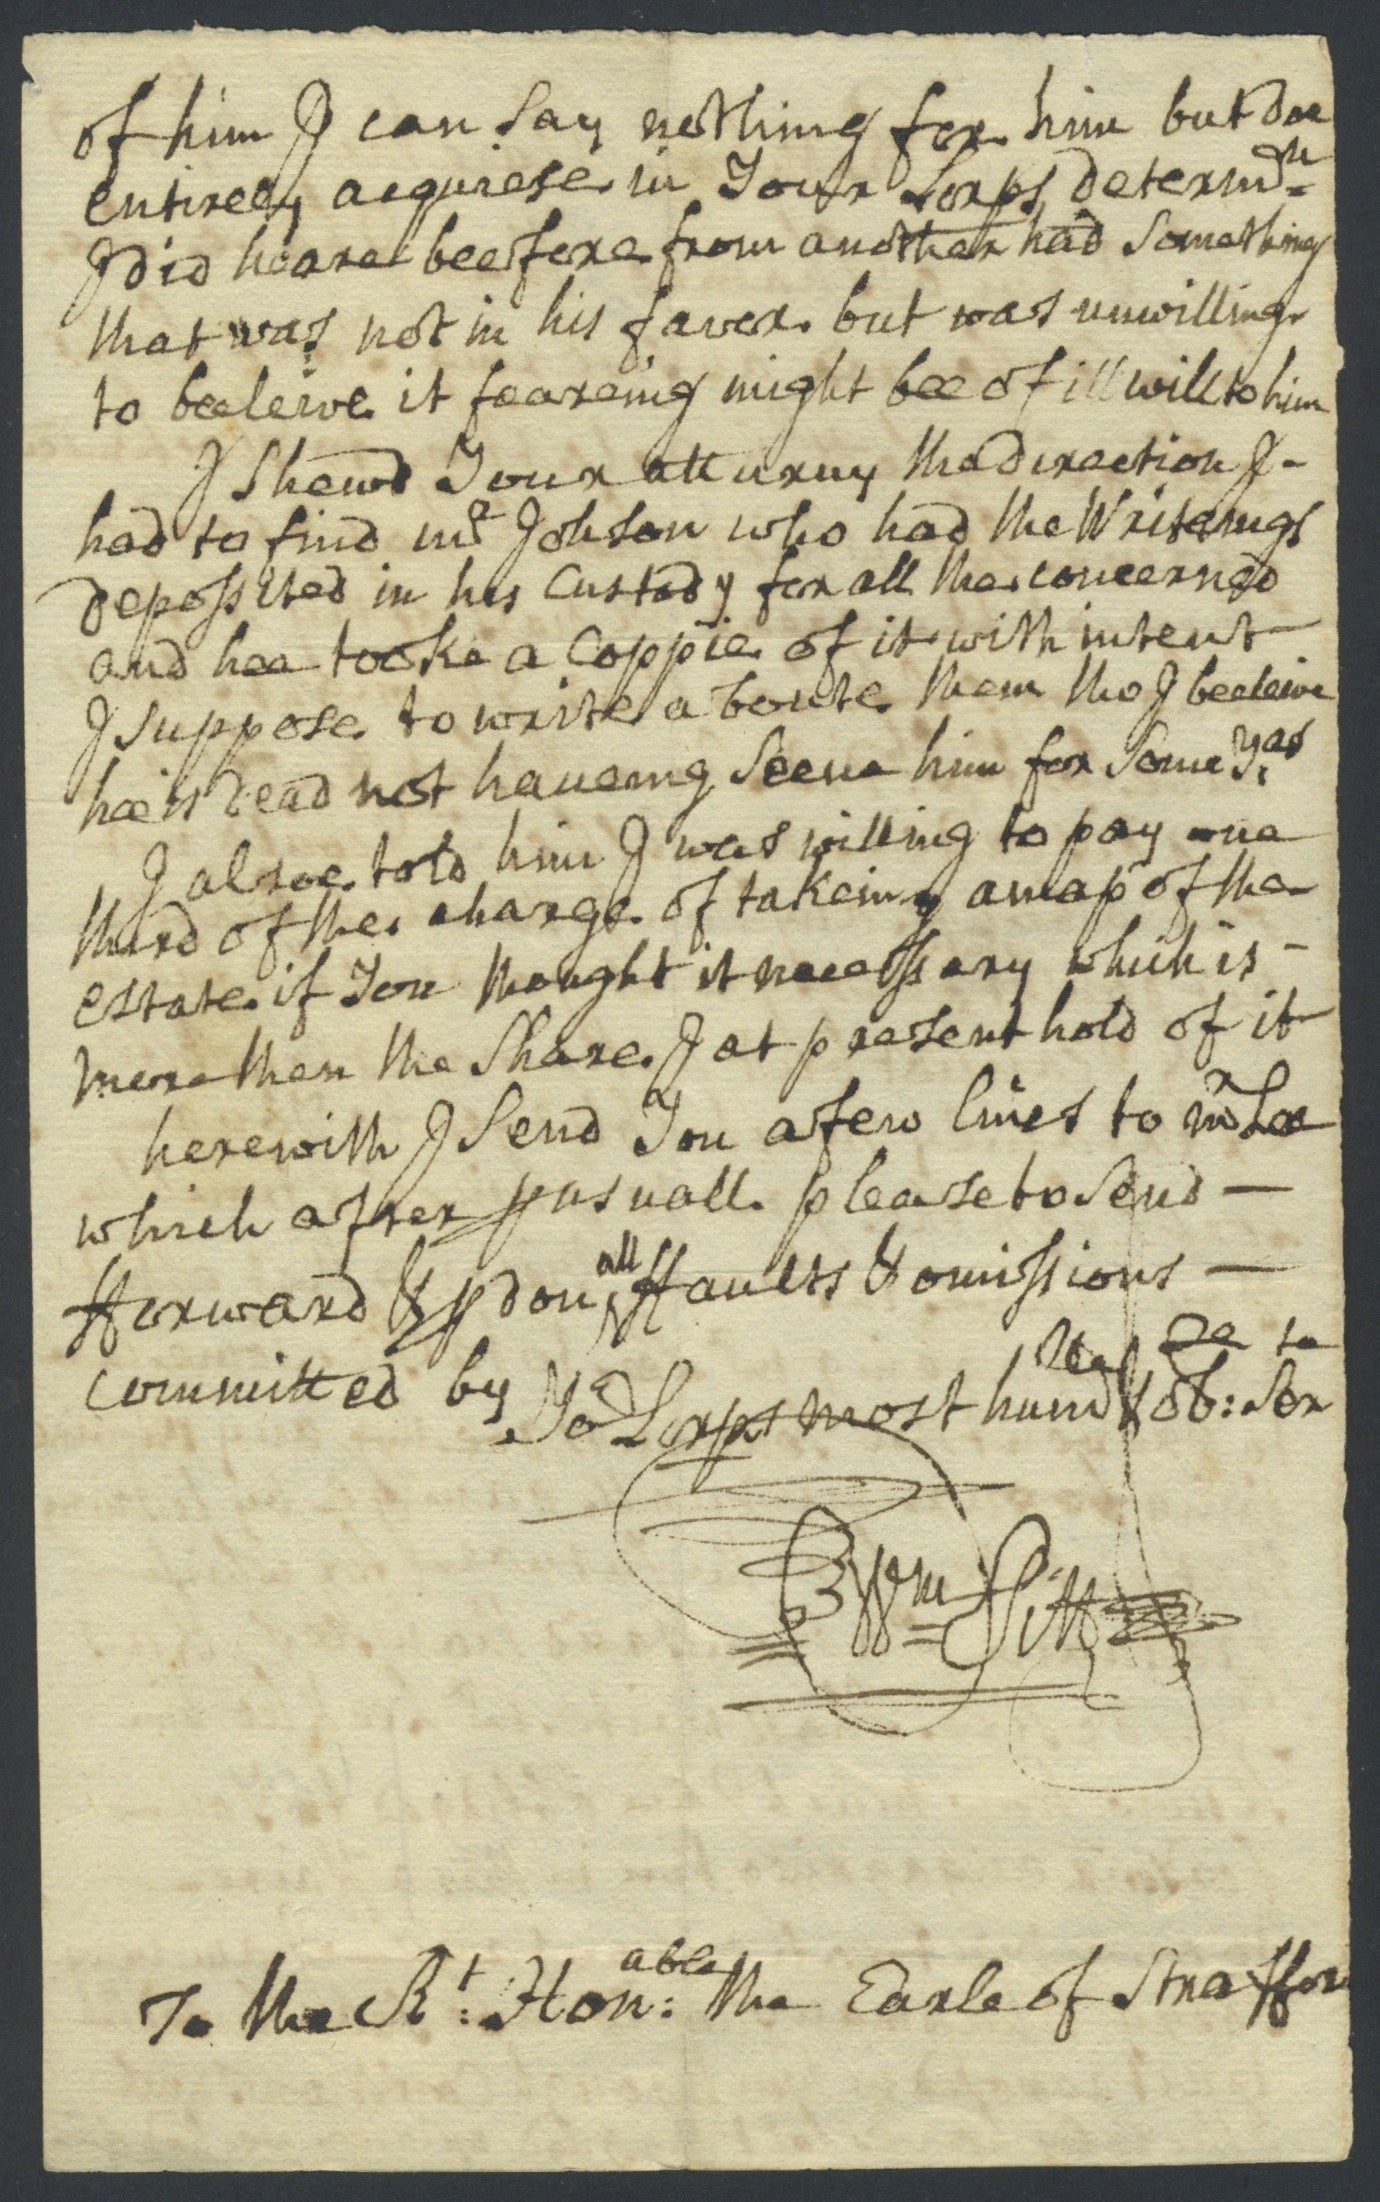 of him J can say nothing for him but doe
entirely acquiese in Your Lorps determ:dn
J did heare beefore from another had Something
that was not in his favor but was unwilling
to beeleive it feareing might bee of ill will to him
J Shewd Your atturny the direction J -
had to find mr Johson who had the Writeings
depossited in his Custody for all the concerned
and hee tooke a Coppie of it with intent
J suppose to write aboute them tho J beeleive
hee is dead not haveing Seene him for Some Yeas
J alsoe told him J was willing to pay one
third of the charge of takeing a map of the
estate if You thought it necessary which is -
more then the Share J at present hold of it
herewith J Send You a few lines to mr Lee
which after pusuall please to Send —
fforward & pdon all ffaults & omissions —
committed by
Yor Lorps most humble & obde: Serta
Wm Pitt
To the Rt: Honable: the Earle of Straffor